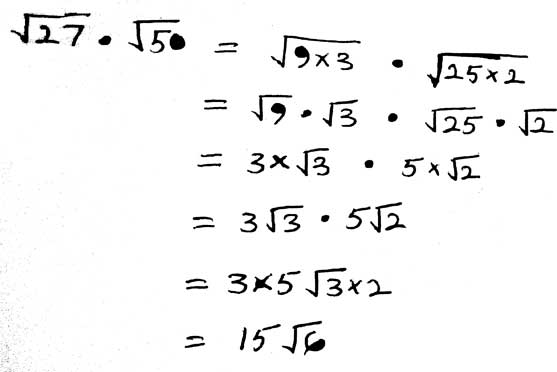 √27 · √50 = √9×3 · √25×2
= √9 · √3 · √25 · √2
= 3×√3 · 5×√2
= 3√3 · 5√2
= 3×5√3×2
= 15√6